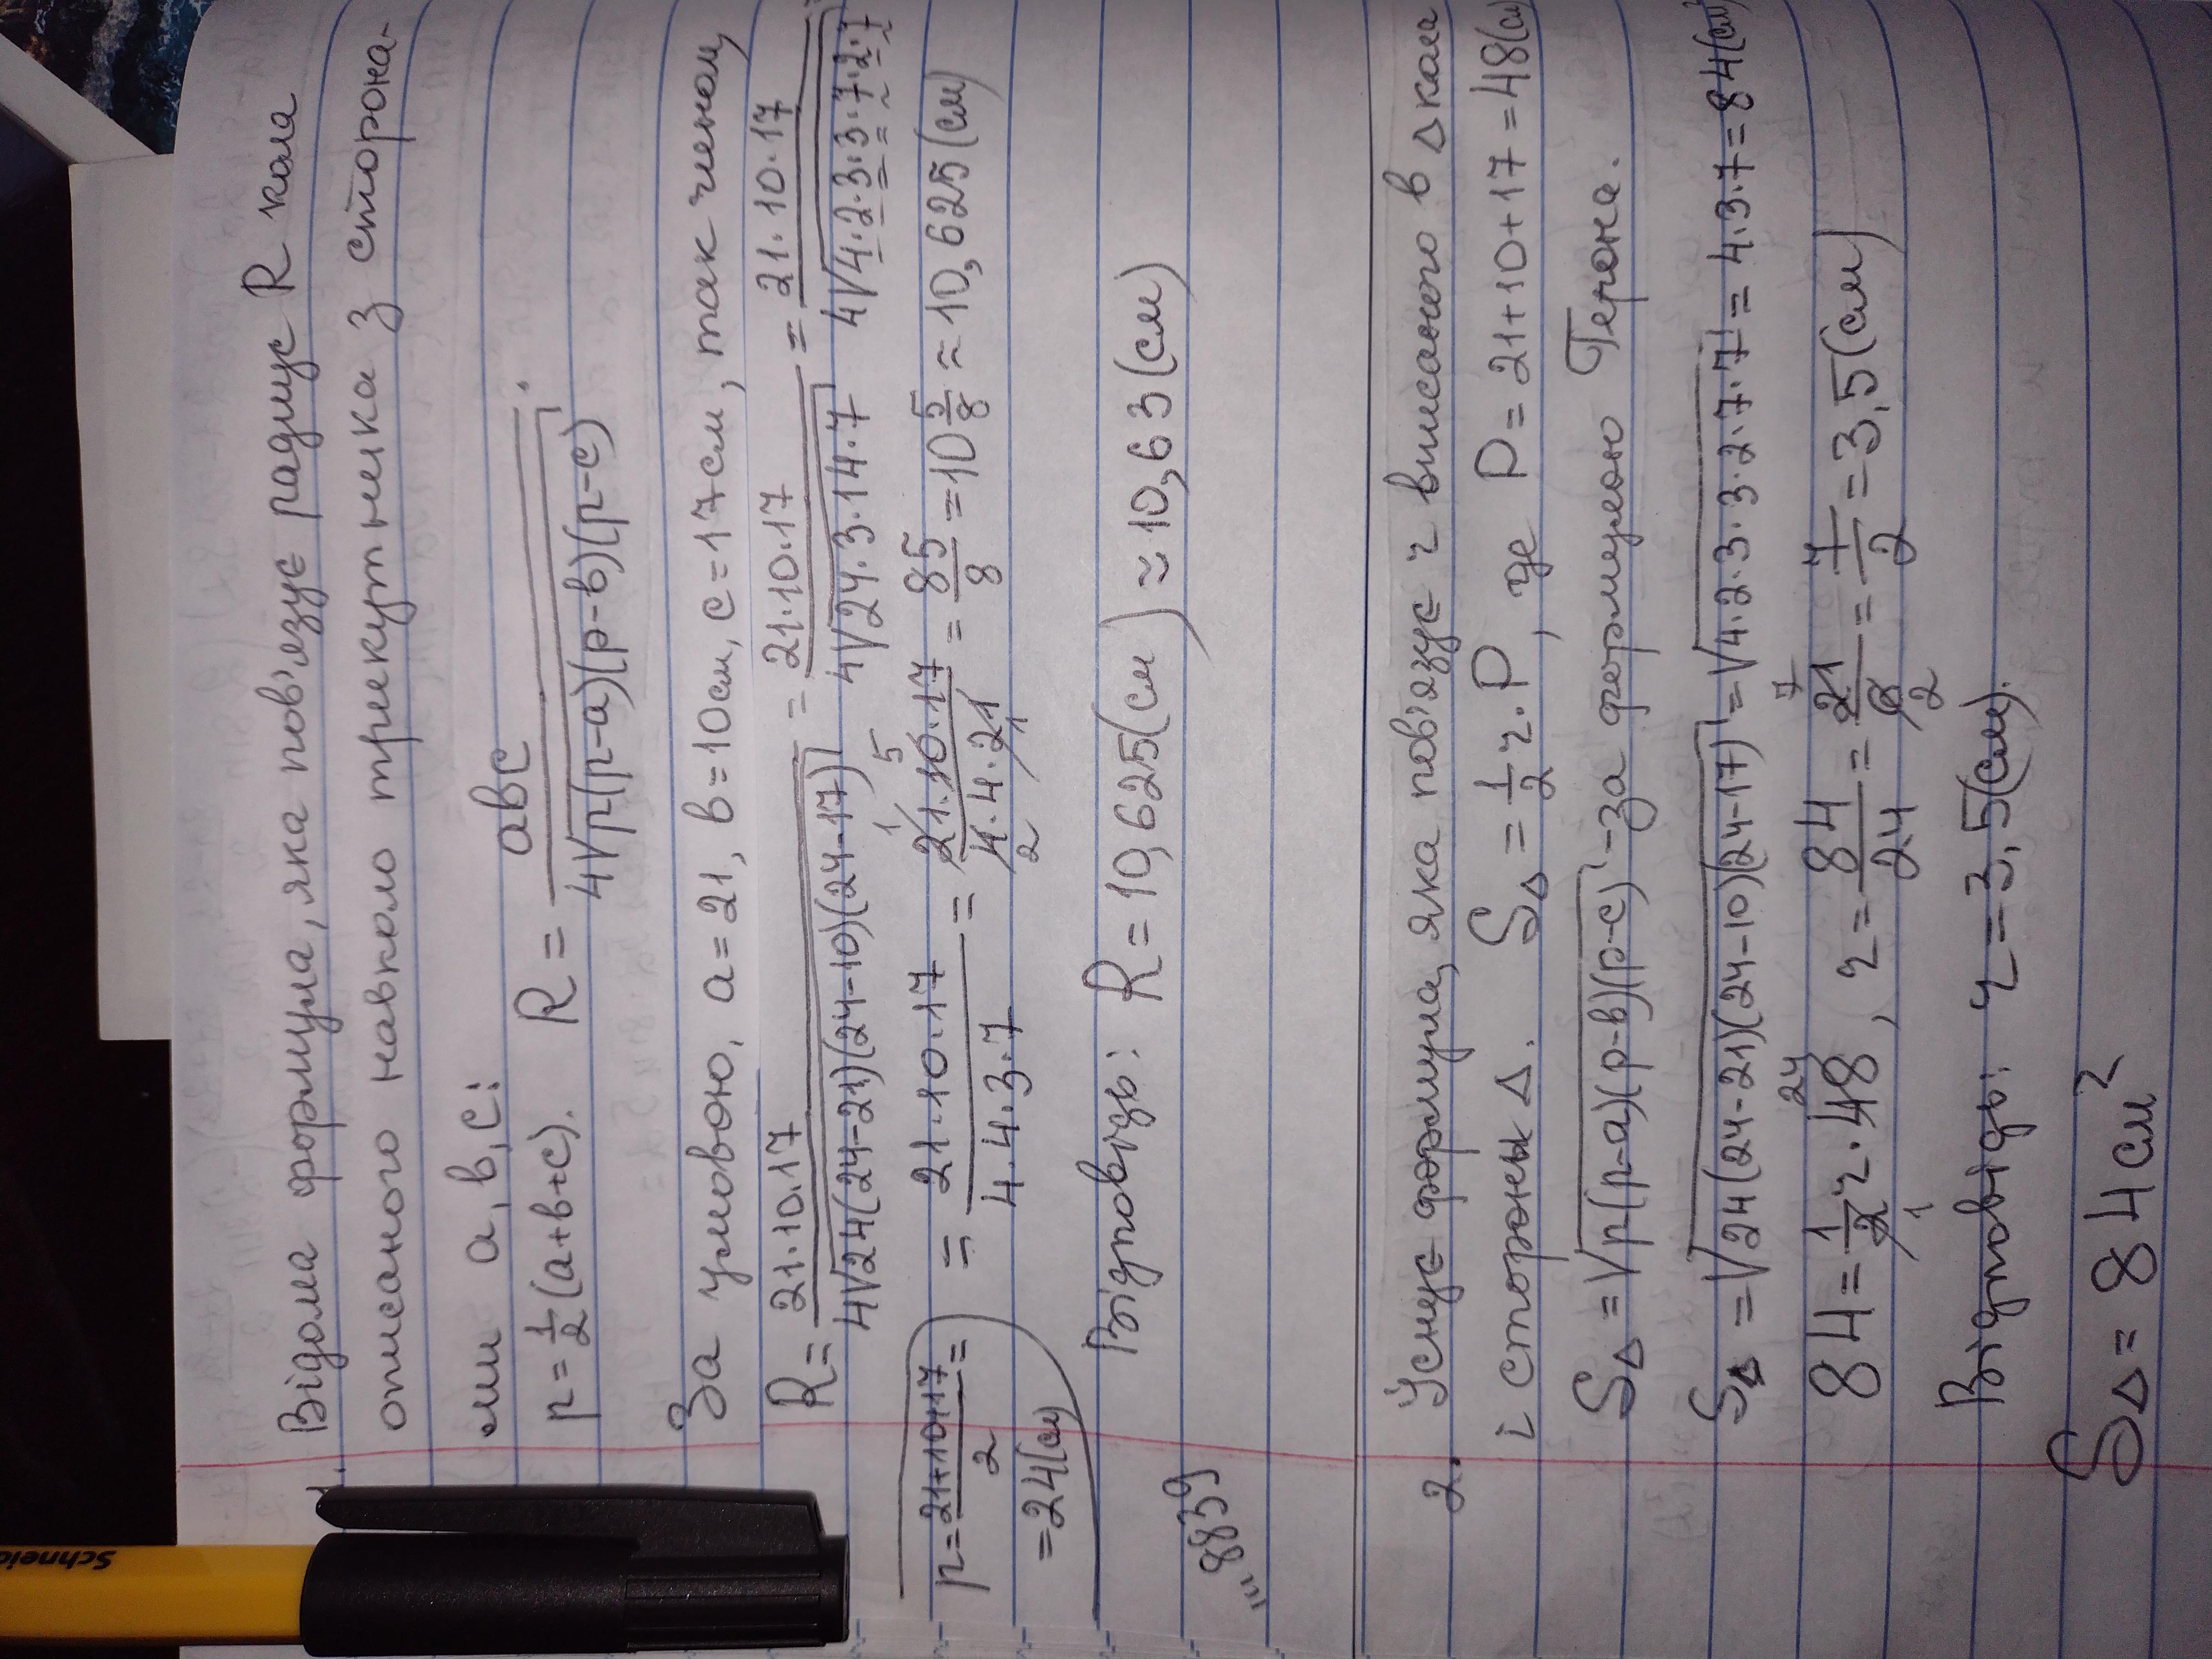 1. Відома формула, яка пов'язує радиус R кола
описаного навколо трикутника з сторона-
ми a, b, c:
p = 1/2 (a+b+c). R = abc / 4√p(p-a)(p-b)(p-c) .
За умовою, a=21, b=10см, c=17см, так чином,
R = 21·10·17 / 4√24(24-21)(24-10)(24-17) = 21·10·17 / 4√24·3·14·7 = 21·10·17 / 4√4·2·3·3·7·2·7
p = 21+10+17 / 2 = = 21·10·17 / 4·4·3·7 = 21·10·17 / 4·4·21 = 85/8 = 10 5/8 ≈ 10,625 (см)
= 24(см)
Відповідь: R = 10,625(см) ≈ 10,63(см)
"8839
2. Існує формула, яка пов'язує r вписаного в △ кола
і стороны △. S△ = 1/2 r·P, где P = 21+10+17 = 48(см)
S△ = √p(p-a)(p-b)(p-c) - за формулою Герона.
S△ = √24(24-21)(24-10)(24-17) = √4·2·3·3·2·7·7 = 4·3·7 = 84(см²)
84 = 1/2 r·48, r = 84/24 = 21/6 = 7/2 = 3,5(см)
Відповідь: r = 3,5(см).
S△ = 84см²
Schneid